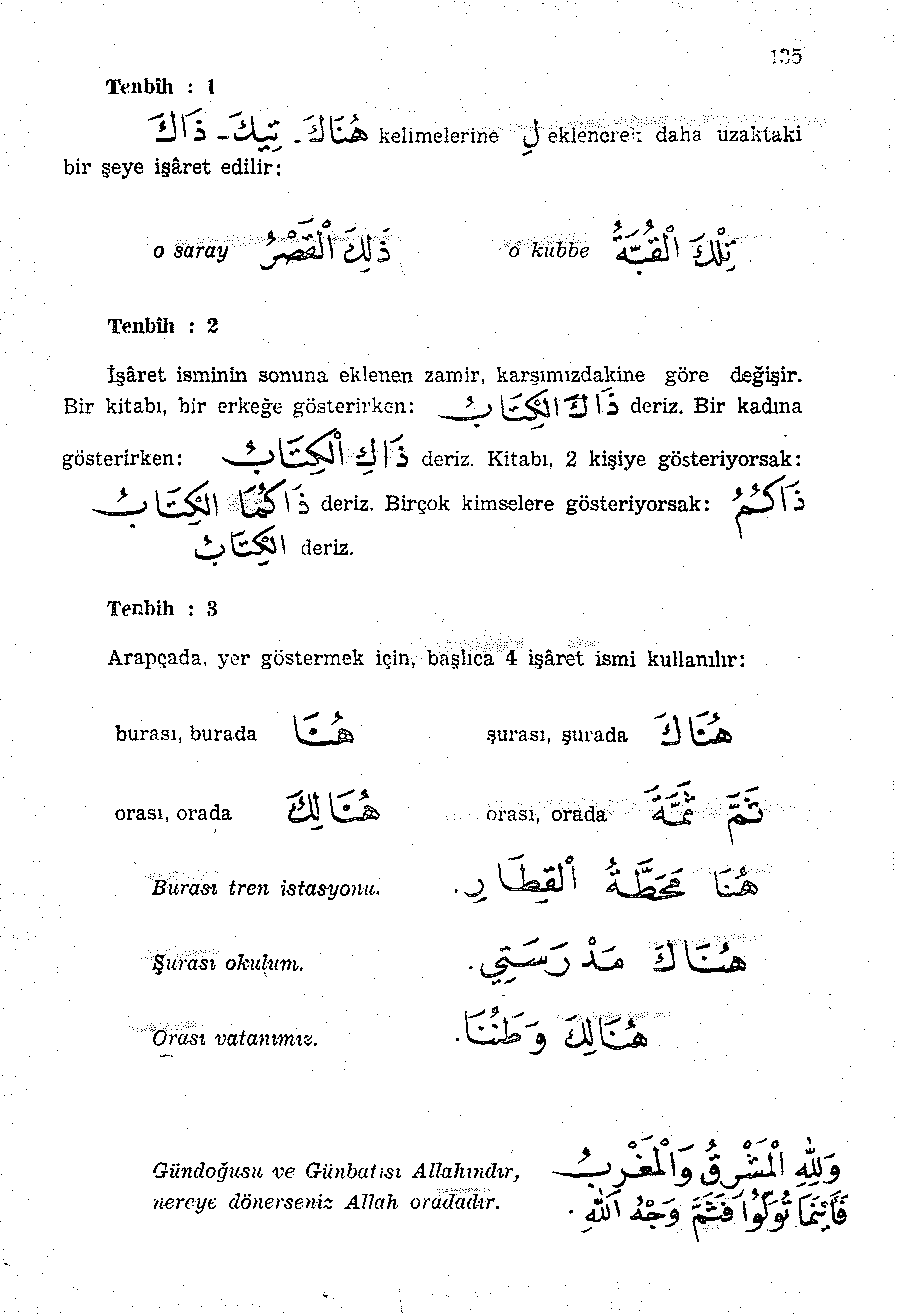 135
Tenbîh : 1
هُنَاكَ - تِيكَ - ذَاكَ kelimelerine لِ eklenerek daha uzaktaki
bir şeye işâret edilir:
o saray ذٰلِكَ الْقَصْرُ o kubbe تِلْكَ الْقُبَّةُ
Tenbîh : 2
İşâret isminin sonuna eklenen zamir, karşımızdakine göre değişir.
Bir kitabı, bir erkeğe gösterirken: ذَاكَ الْكِتَابُ deriz. Bir kadına
gösterirken: ذَاكِ الْكِتَابُ deriz. Kitabı, 2 kişiye gösteriyorsak:
ذَاكُمَا الْكِتَابُ deriz. Birçok kimselere gösteriyorsak: ذَاكُمُ
الْكِتَابُ deriz.
Tenbih : 3
Arapçada, yer göstermek için, başlıca 4 işâret ismi kullanılır:
burası, burada هُنَا şurası, şurada هُنَاكَ
orası, orada هُنَالِكَ orası, orada ثَمَّ ثَمَّةَ
Burası tren istasyonu. هُنَا مَحَطَّةُ الْقِطَارِ.
Şurası okulum. هُنَاكَ مَدْرَسَتِي.
Orası vatanımız. هُنَالِكَ وَطَنُنَا.
Gündoğusu ve Günbatısı Allahındır, وَلِلّٰهِ الْمَشْرِقُ وَالْمَغْرِبُ
nereye dönerseniz Allah oradadır. فَأَيْنَمَا تُوَلُّوا فَثَمَّ وَجْهُ اللّٰهِ.